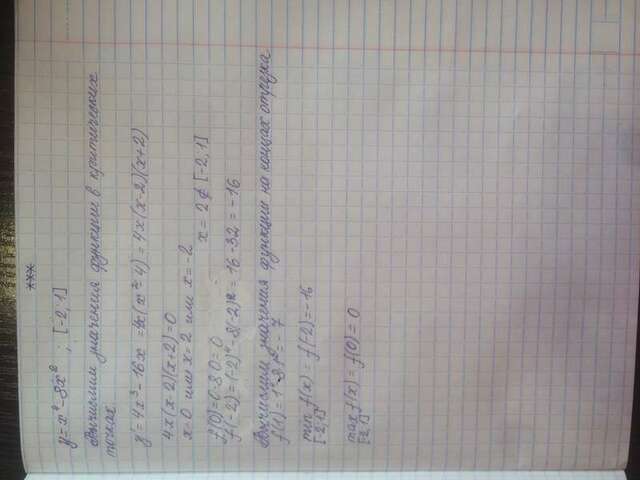 ***
y = x⁴ - 8x² ; [-2; 1]
вычислим значения функции в критических
точках
y = 4x³ - 16x = 4x(x² - 4) = 4x(x-2)(x+2)
4x(x-2)(x+2)=0
x=0 или x=2 или x=-2
x = 2 ∉ [-2; 1]
f(0)=0-8·0=0
f(-2)=(-2)⁴-8(-2)² = 16-32 = -16
вычислим значения функции на концах отрезка
f(1)=1⁴-8·1²=-7
min f(x) = f(-2) = -16
[-2;1]
max f(x) = f(0) = 0
[-2;1]